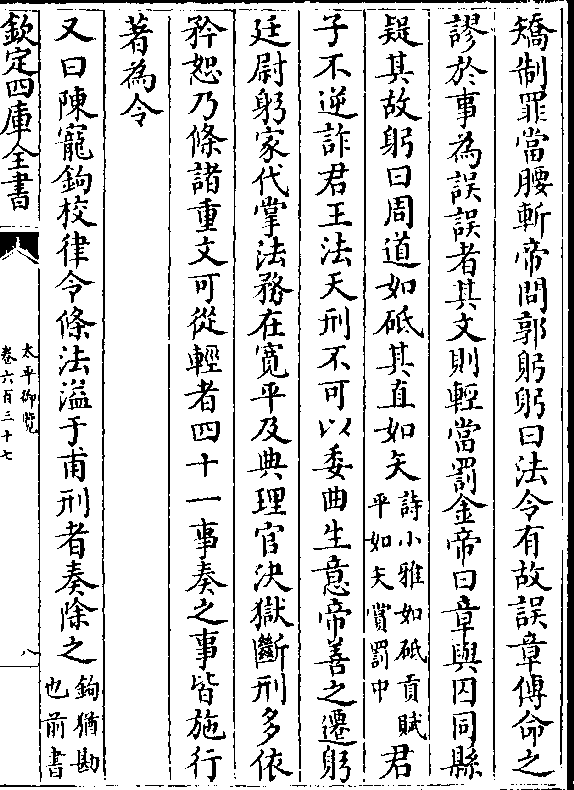 矯制罪當腰斬帝問郭躬躬曰法令有故誤章傳命之
謬於事為誤誤者其文則輕當罰金帝曰章與囚同縣
疑其故躬曰周道如砥其直如矢詩小雅如砥貢賦平如矢賞罰中君
子不逆詐君王法天刑不可以委曲生意帝善之遷躬
廷尉躬家代掌法務在寛平及典理官決獄斷刑多依
矜恕乃條諸重文可從輕者四十一事奏之事皆施行
著為令
又曰陳寵鉤校律令條法溢于甫刑者奏除之鉤猶勘也前書
欽定四庫全書
太平御覧
卷六百三十七
八